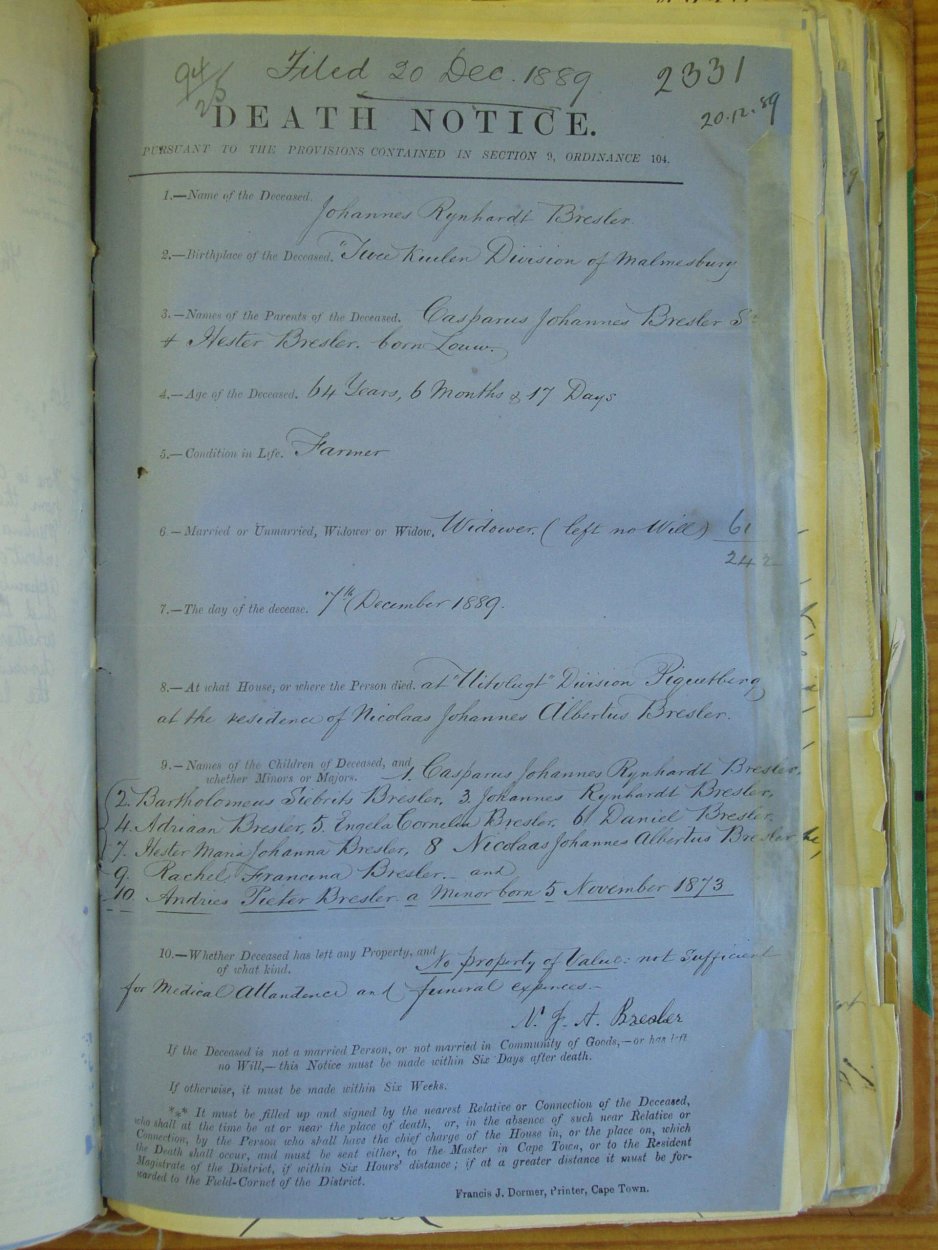 Filed 20 Dec. 1889 2331
20.12.89
DEATH NOTICE.
PURSUANT TO THE PROVISIONS CONTAINED IN SECTION 9, ORDINANCE 104.
1.—Name of the Deceased. Johannes Rynhardt Bresler
2.—Birthplace of the Deceased. "Twee Kuilen Division of Malmesbury
3.—Names of the Parents of the Deceased. Casparus Johannes Bresler Sr
& Hester Bresler. born Louw.
4.—Age of the Deceased. 64 Years, 6 Months & 17 Days
5.—Condition in Life. Farmer
6—Married or Unmarried, Widower or Widow. Widower. (left no Will) 61
242
7.—The day of the decease. 7th December 1889.
8.—At what House, or where the Person died. at "Uitvlugt" Division Piquetberg
at the residence of Nicolaas Johannes Albertus Bresler.
9.—Names of the Children of Deceased, and
whether Minors or Majors. 1. Casparus Johannes Rynhardt Bresler,
2. Bartholomeus Siebrits Bresler, 3. Johannes Rynhardt Bresler,
4. Adriaan Bresler, 5. Engela Cornelia Bresler, 6 Daniel Bresler,
7. Hester Maria Johanna Bresler, 8 Nicolaas Johannes Albertus Bresler
9. Rachel Francina Bresler.— and
10 Andries Pieter Bresler a Minor born 5 November 1873
10.—Whether Deceased has left any Property, and
of what kind. No property of Value: not Sufficient
for Medical Attandence and funeral expences.—
N. J. A. Bresler
If the Deceased is not a married Person, or not married in Community of Goods,—or has left
no Will,—this Notice must be made within Six Days after death.
If otherwise, it must be made within Six Weeks.
*** It must be filled up and signed by the nearest Relative or Connection of the Deceased,
who shall at the time be at or near the place of death, or, in the absence of such near Relative or
Connection, by the Person who shall have the chief charge of the House in, or the place on, which
the Death shall occur, and must be sent either, to the Master in Cape Town, or to the Resident
Magistrate of the District, if within Six Hours' distance; if at a greater distance it must be for-
warded to the Field-Cornet of the District.
Francis J. Dormer, Printer, Cape Town.